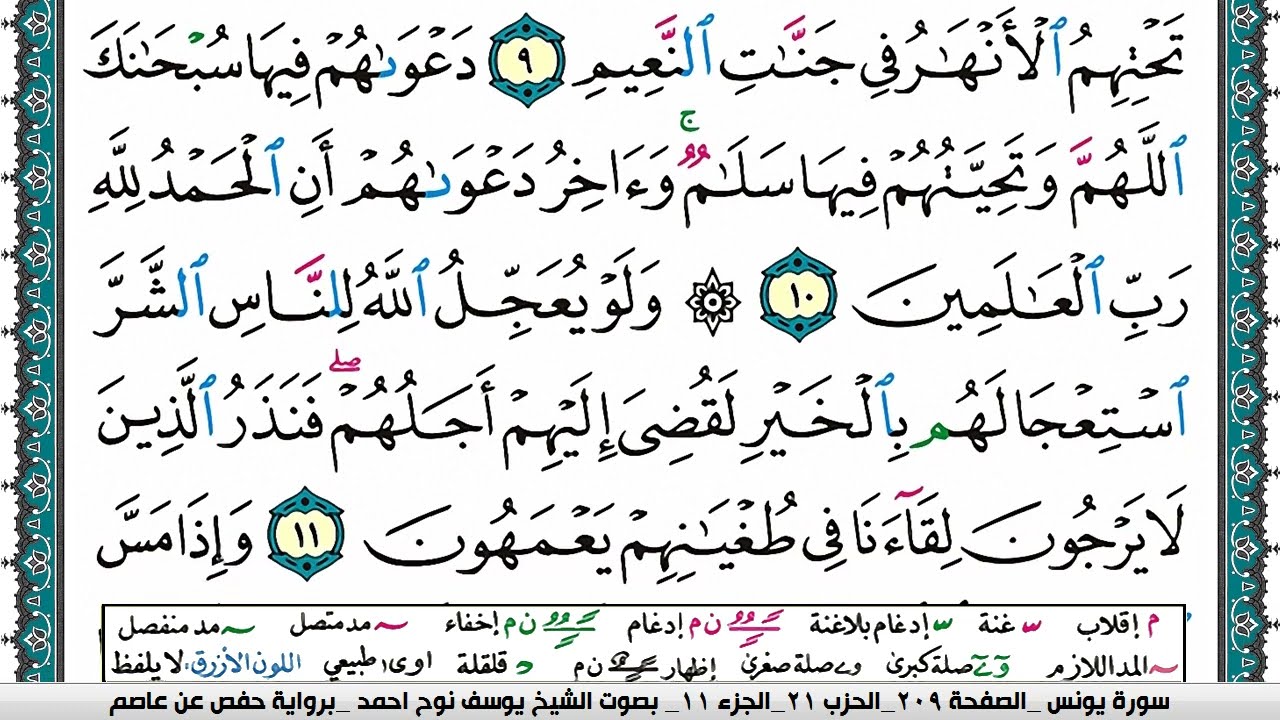 تَحْتِهِمُ ٱلْأَنْهَـٰرُ فِى جَنَّـٰتِ ٱلنَّعِيمِ ٩ دَعْوَىٰهُمْ فِيهَا سُبْحَـٰنَكَ
ٱللَّهُمَّ وَتَحِيَّتُهُمْ فِيهَا سَلَـٰمٌ ۚ وَءَاخِرُ دَعْوَىٰهُمْ أَنِ ٱلْحَمْدُ لِلَّهِ
رَبِّ ٱلْعَـٰلَمِينَ ١٠ ۞ وَلَوْ يُعَجِّلُ ٱللَّهُ لِلنَّاسِ ٱلشَّرَّ
ٱسْتِعْجَالَهُم بِٱلْخَيْرِ لَقُضِىَ إِلَيْهِمْ أَجَلُهُمْ ۖ فَنَذَرُ ٱلَّذِينَ
لَا يَرْجُونَ لِقَآءَنَا فِى طُغْيَـٰنِهِمْ يَعْمَهُونَ ١١ وَإِذَا مَسَّ
م إقلاب غنة إدغام بلاغنة ن م إدغام ن م إخفاء مد متصل مد منفصل
المد اللازم صلة كبرىٰ صلة صغرىٰ إظهار ن م د قلقلة اوى١ طبيعي اللون الأزرق، لا يلفظ
سورة يونس _الصفحة ٢٠٩_الحزب ٢١_الجزء ١١_ بصوت الشيخ يوسف نوح احمد _برواية حفص عن عاصم